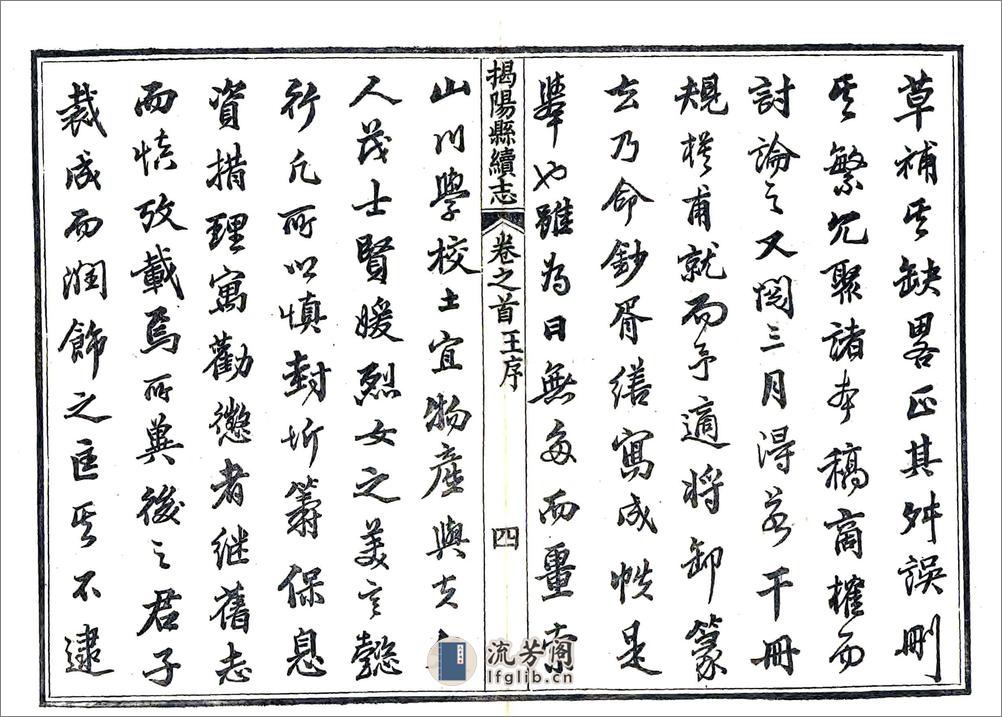 草補其缺畧正其舛誤刪
其繁冗聚諸本稿商榷而
討論之又閱三月得若干冊
規模甫就而予適將卸篆
去乃命鈔胥繕寫成帙是
舉也雖為日無多而畺索
揭陽縣續志
卷之首王序
四
山川學校土宜物產與夫
人茂士賢媛烈女之美言懿
行凡所以慎封圻籌保息
資措理寓勸懲者继舊志
而慎攷載焉所冀後之君子
裁成而潤飾之匡其不逮
流芳阁
lfglib.cn